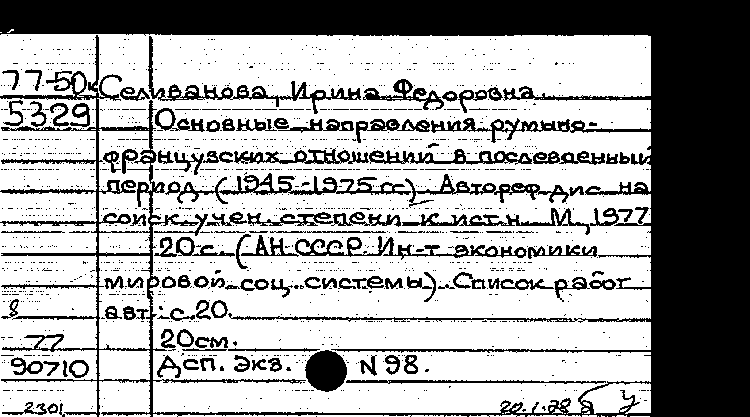 77-50к Селиванова, Ирина Федоровна.
5329 Основные направления румыно-
французских отношений в послевоенный
период (1945-1975 гг). Автореф. дис. на
соиск. учен. степени к. ист. н. М., 1977
20 с. (АН СССР. Ин-т экономики
мировой соц. системы). Список работ
8 авт.: с. 20.
77 20см.
90710 Дсп. Экз. N 98.
2301